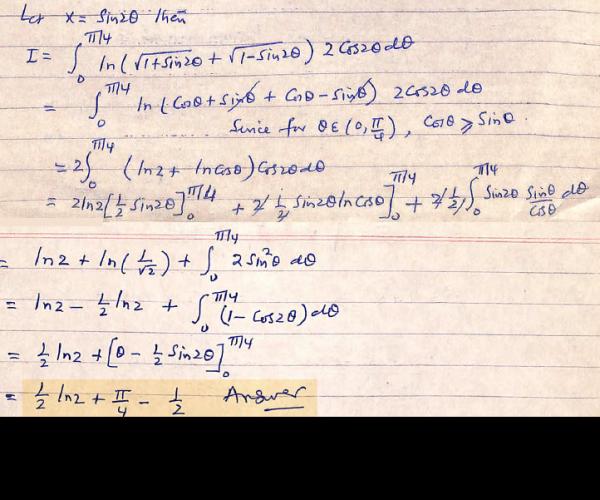 Let x = Sin2θ then
I = ∫₀^{π/4} ln(√(1+Sin2θ) + √(1-Sin2θ)) 2Cos2θ dθ
= ∫₀^{π/4} ln(Cosθ + Sinθ + Cosθ - Sinθ) 2Cos2θ dθ
Since for θ∈(0, π/4), Cosθ ⩾ Sinθ.
= 2∫₀^{π/4} (ln2 + lnCosθ) Cos2θdθ
= 2ln2[1/2 Sin2θ]₀^{π/4} + 2·1/2 Sin2θ lnCosθ]₀^{π/4} + 2(1/2)∫₀^{π/4} Sin2θ Sinθ/Cosθ dθ
= ln2 + ln(1/√2) + ∫₀^{π/4} 2Sin²θ dθ
= ln2 - 1/2 ln2 + ∫₀^{π/4} (1 - Cos2θ)dθ
= 1/2 ln2 + [θ - 1/2 Sin2θ]₀^{π/4}
= 1/2 ln2 + π/4 - 1/2 Answer